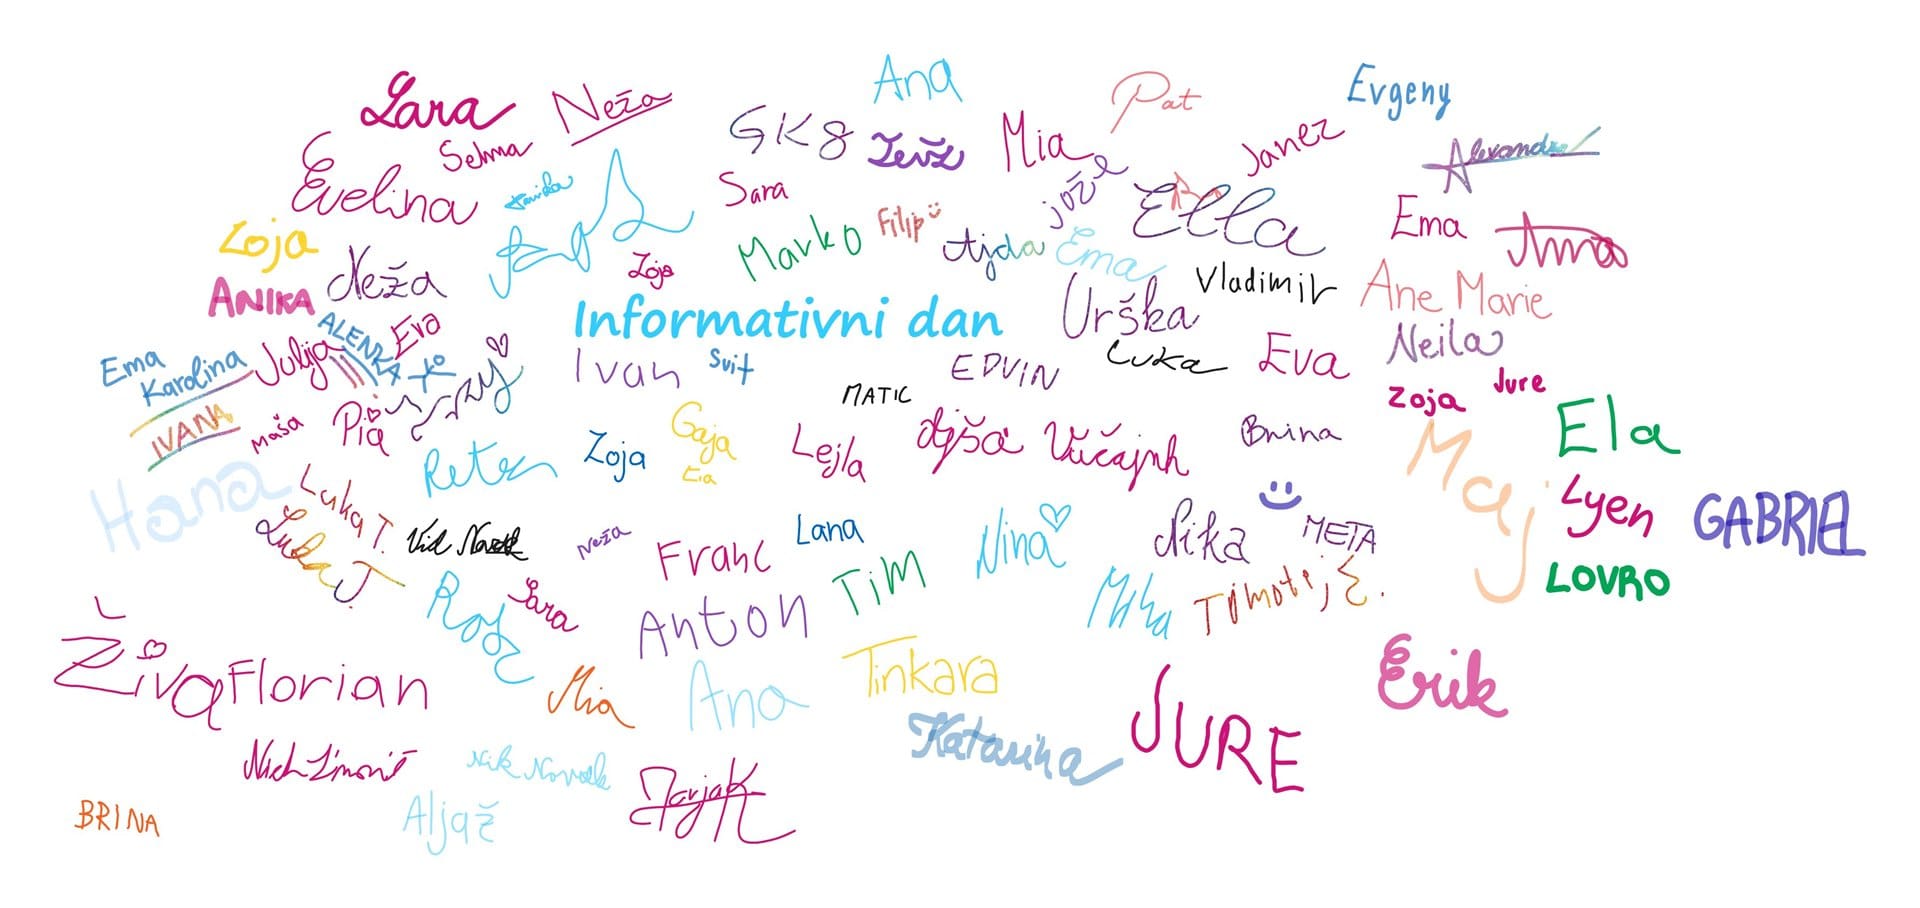 Ana
Evgeny
Lara
Neža
Pat
GK8
Mia
Janez
Selma
Evelina
Sara
Jože
Ella
Alexandra
Filip
Ema
Zoja
Marko
Ajda
Ema
Neža
Zoja
Vladimir
Ane Marie
ANIKA
Informativni dan
Urška
ALENKA
Eva
Neila
Ema
Karolina
Julija
Ivan
Svit
EDVIN
Luka
Eva
MATIC
Zoja
Jure
IVANA
Maša
Pia
Gaja
Ela
Zoja
Lejla
Ajša
Brina
Maj
Hana
Luka T.
Lyen
GABRIEL
Luka J.
Neža
Franc
Lana
Nina
Nika
META
Tim
LOVRO
Sara
Anton
Miha
Živa
Florian
Mia
Ana
Tinkara
Erik
Katarina
JURE
Nik Novak
BRINA
Aljaž